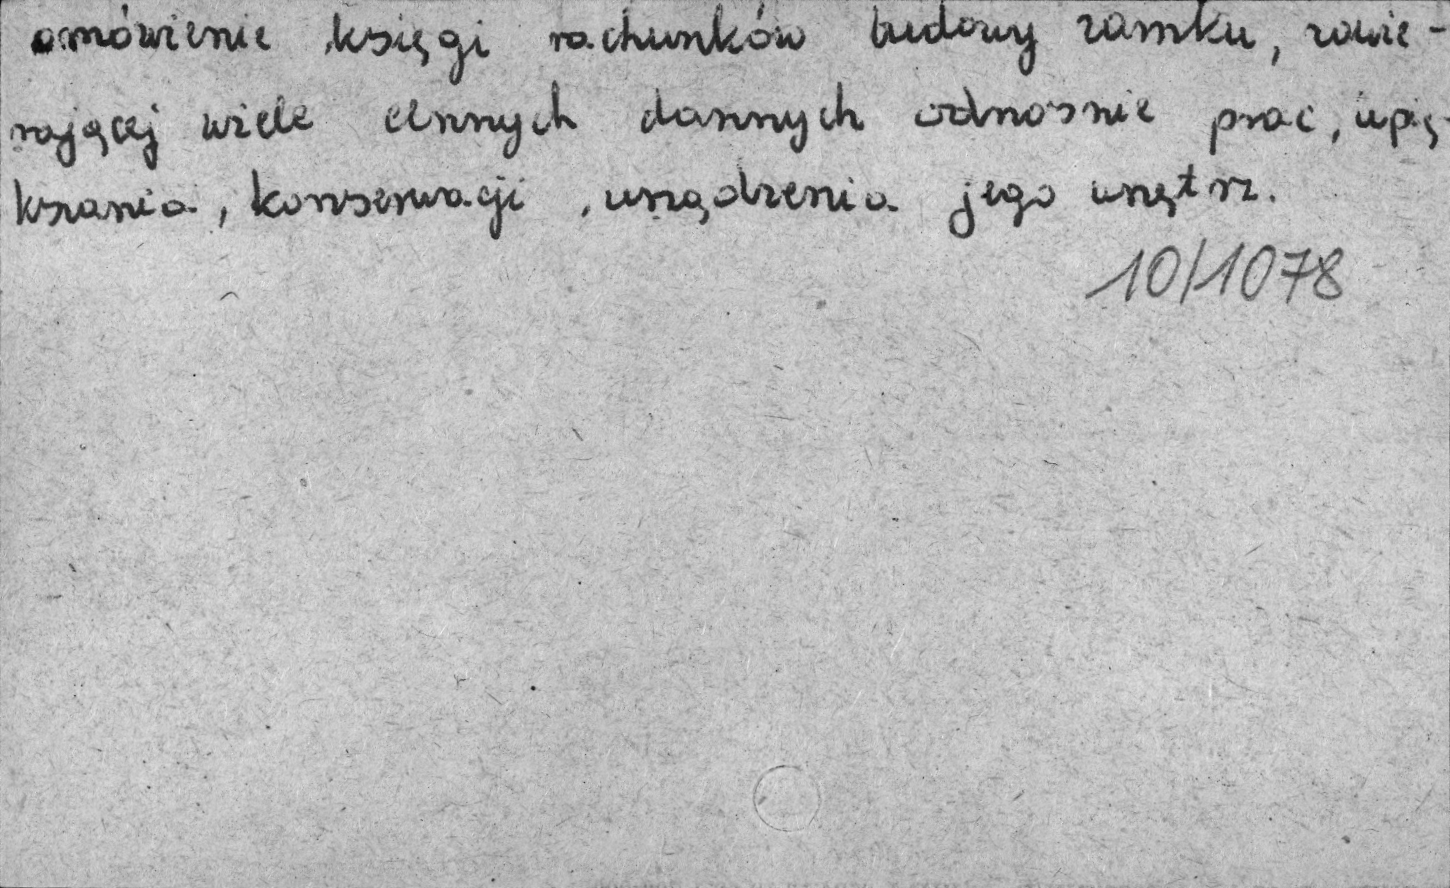 omówienie księgi rachunków budowy zamku, zawie-
rającej wiele cennych dannych odnośnie prac, upię-
kszania, konserwacji, urządzenia jego wnętrz.
10/1078